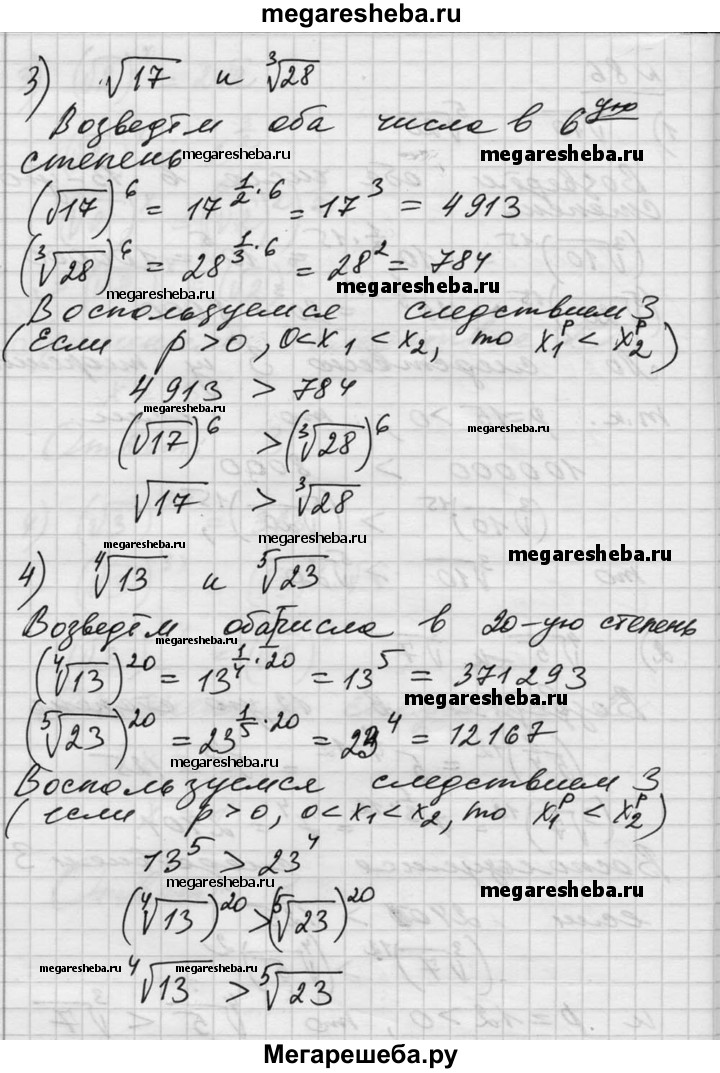 megaresheba.ru
3) √17 и ∛28
Возведём оба числа в 6ую
степень megaresheba.ru megaresheba.ru
(√17)^6 = 17^(1/2·6) = 17^3 = 4913
(∛28)^6 = 28^(1/3·6) = 28^2 = 784
megaresheba.ru megaresheba.ru
Воспользуемся следствием 3
(Если p>0, 0<x₁<x₂, то x₁^p < x₂^p)
4913 > 784
megaresheba.ru
(√17)^6 > (∛28)^6 megaresheba.ru
√17 > ∛28
megaresheba.ru megaresheba.ru
megaresheba.ru
4) ∜13 и ⁵√23
Возведём оба числа в 20-ую степень
megaresheba.ru
(∜13)^20 = 13^(1/4·20) = 13^5 = 371293
megaresheba.ru
(⁵√23)^20 = 23^(1/5·20) = 23^4 = 12167
megaresheba.ru
Воспользуемся следствием 3
(если p>0, 0<x₁<x₂, то x₁^p < x₂^p)
13^5 > 23^4
megaresheba.ru megaresheba.ru
(∜13)^20 > (⁵√23)^20
megaresheba.ru megaresheba.ru
∜13 > ⁵√23
Мегарешеба.ру